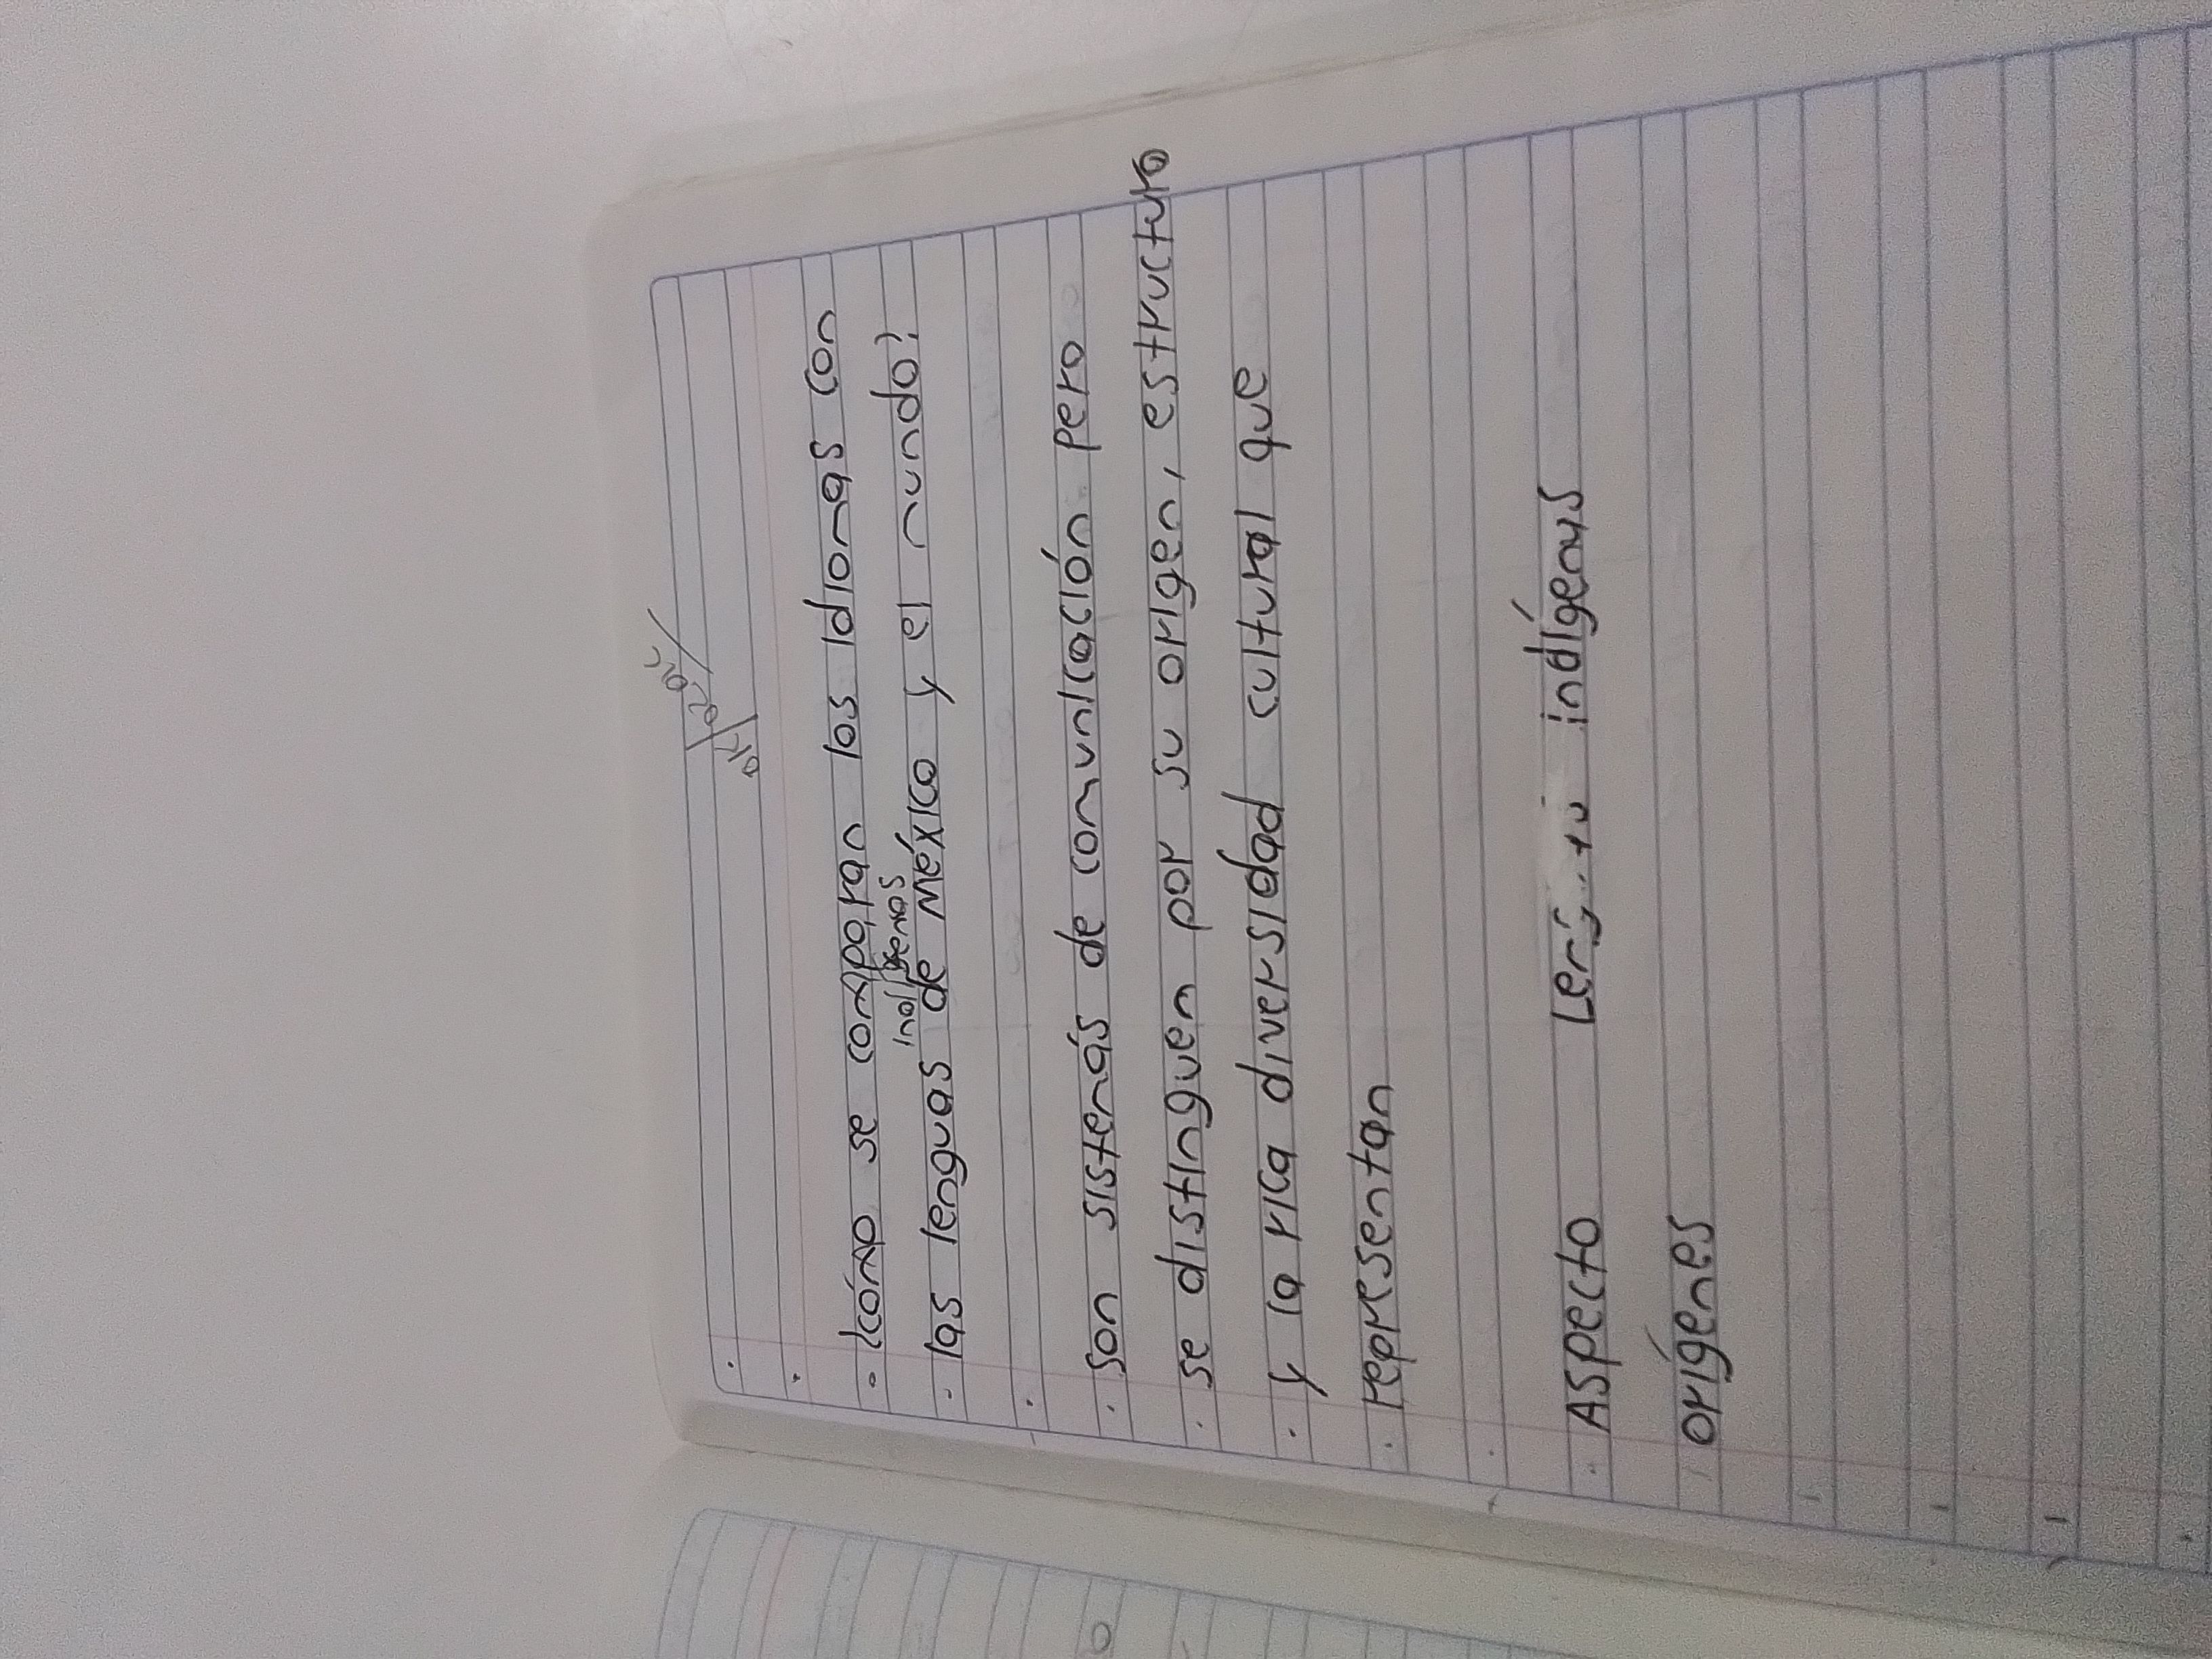 ¿cómo se comparan los idiomas con
indígenas
las lenguas de México y el mundo?
son sistemás de comunicación pero
se distinguen por su origen, estructura
y la rica diversidad cultural que
representan
Aspecto indígenas
orígenes